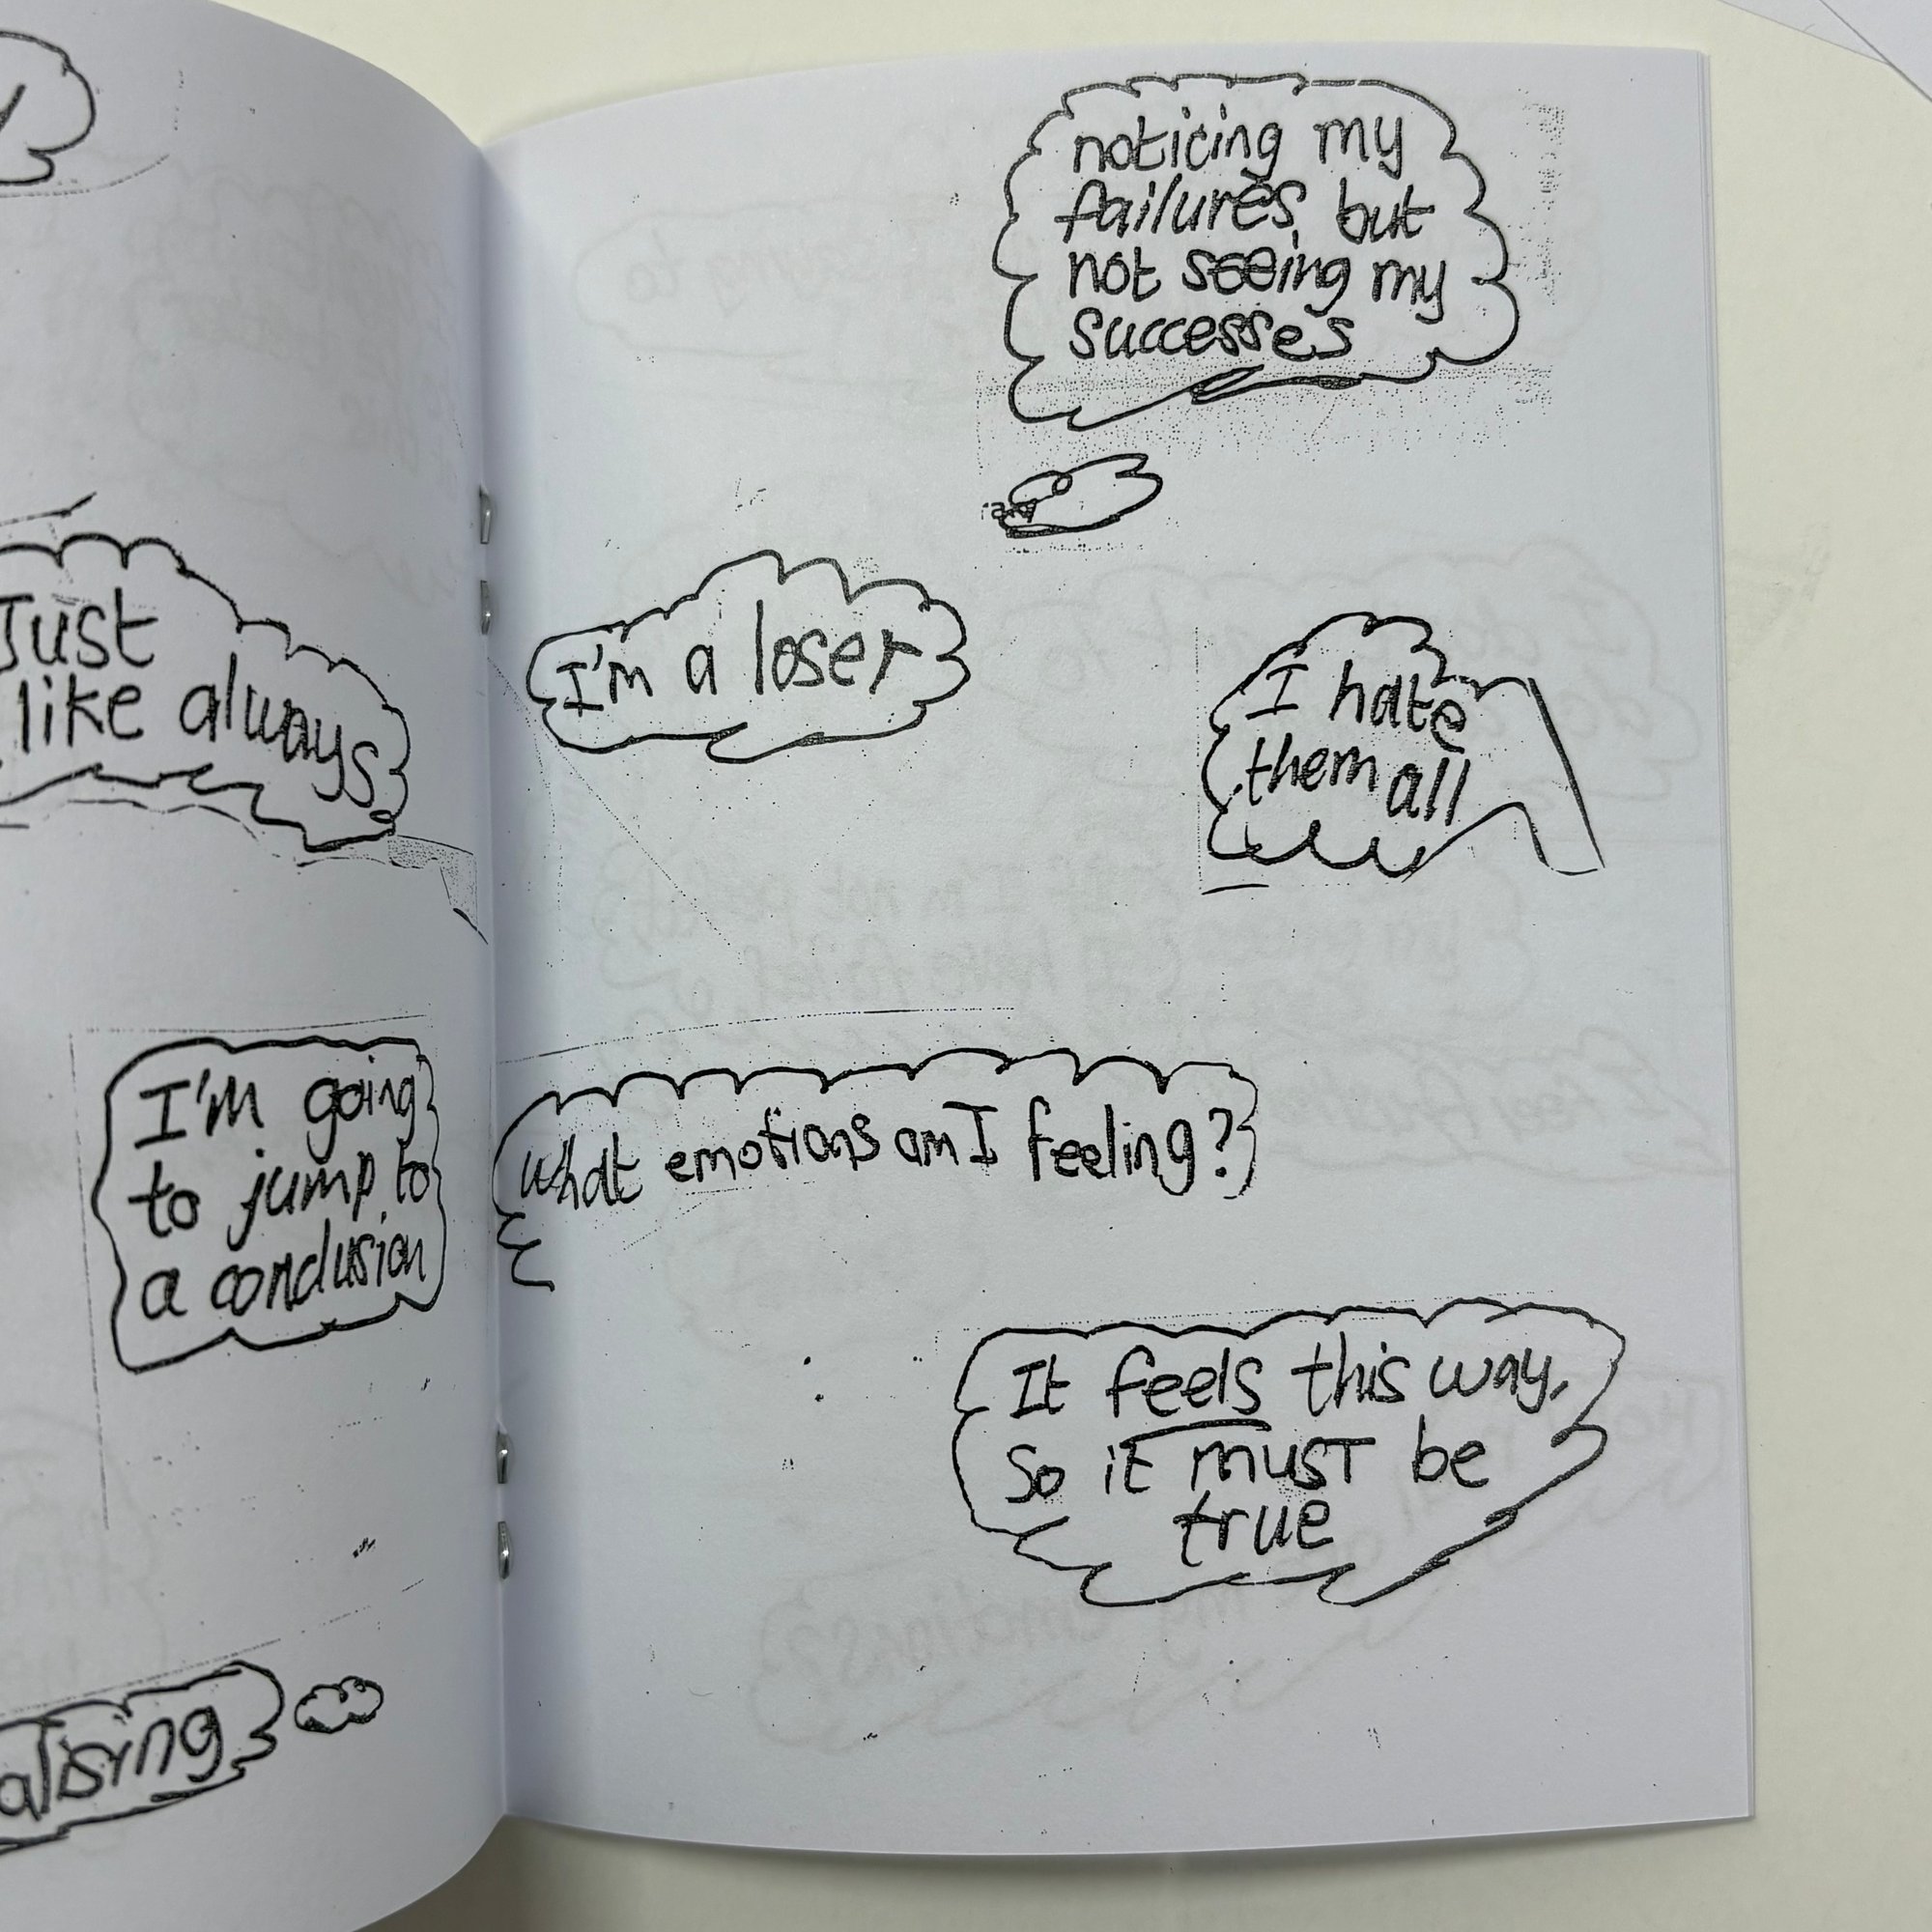 Just
like always
I'm going
to jump to
a conclusion
alising
noticing my
failures, but
not seeing my
successes
I'm a loser
I hate
them all
what emotions am I feeling?
It feels this way,
So it must be
true